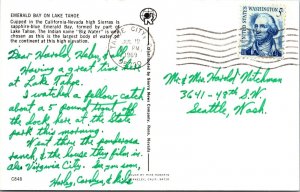 EMERALD BAY ON LAKE TAHOE
Cupped in the California-Nevada high Sierras is
sapphire-blue Emerald Bay, formed by part of
Lake Tahoe. The Indian name "Big Water" is well
chosen as this is the largest body of water of
the continent at this high elevation.
Dear Harold, Haley, & all,
Having a great time here
at Lake Tahoe.
I watched a fellow catch
about a 5 pound trout off
the dock here at the State
park this morning.
Went thru the ponderosa
ranch, & the house they film in,
also Virginia City. So long,
Haley, Carolyn & Mike
C848
CITY
PM
1969
UNITED STATES
WASHINGTON
Mr & Mrs. Harold Hitchman
3641 - 49th S.W.
Seattle, Wash.